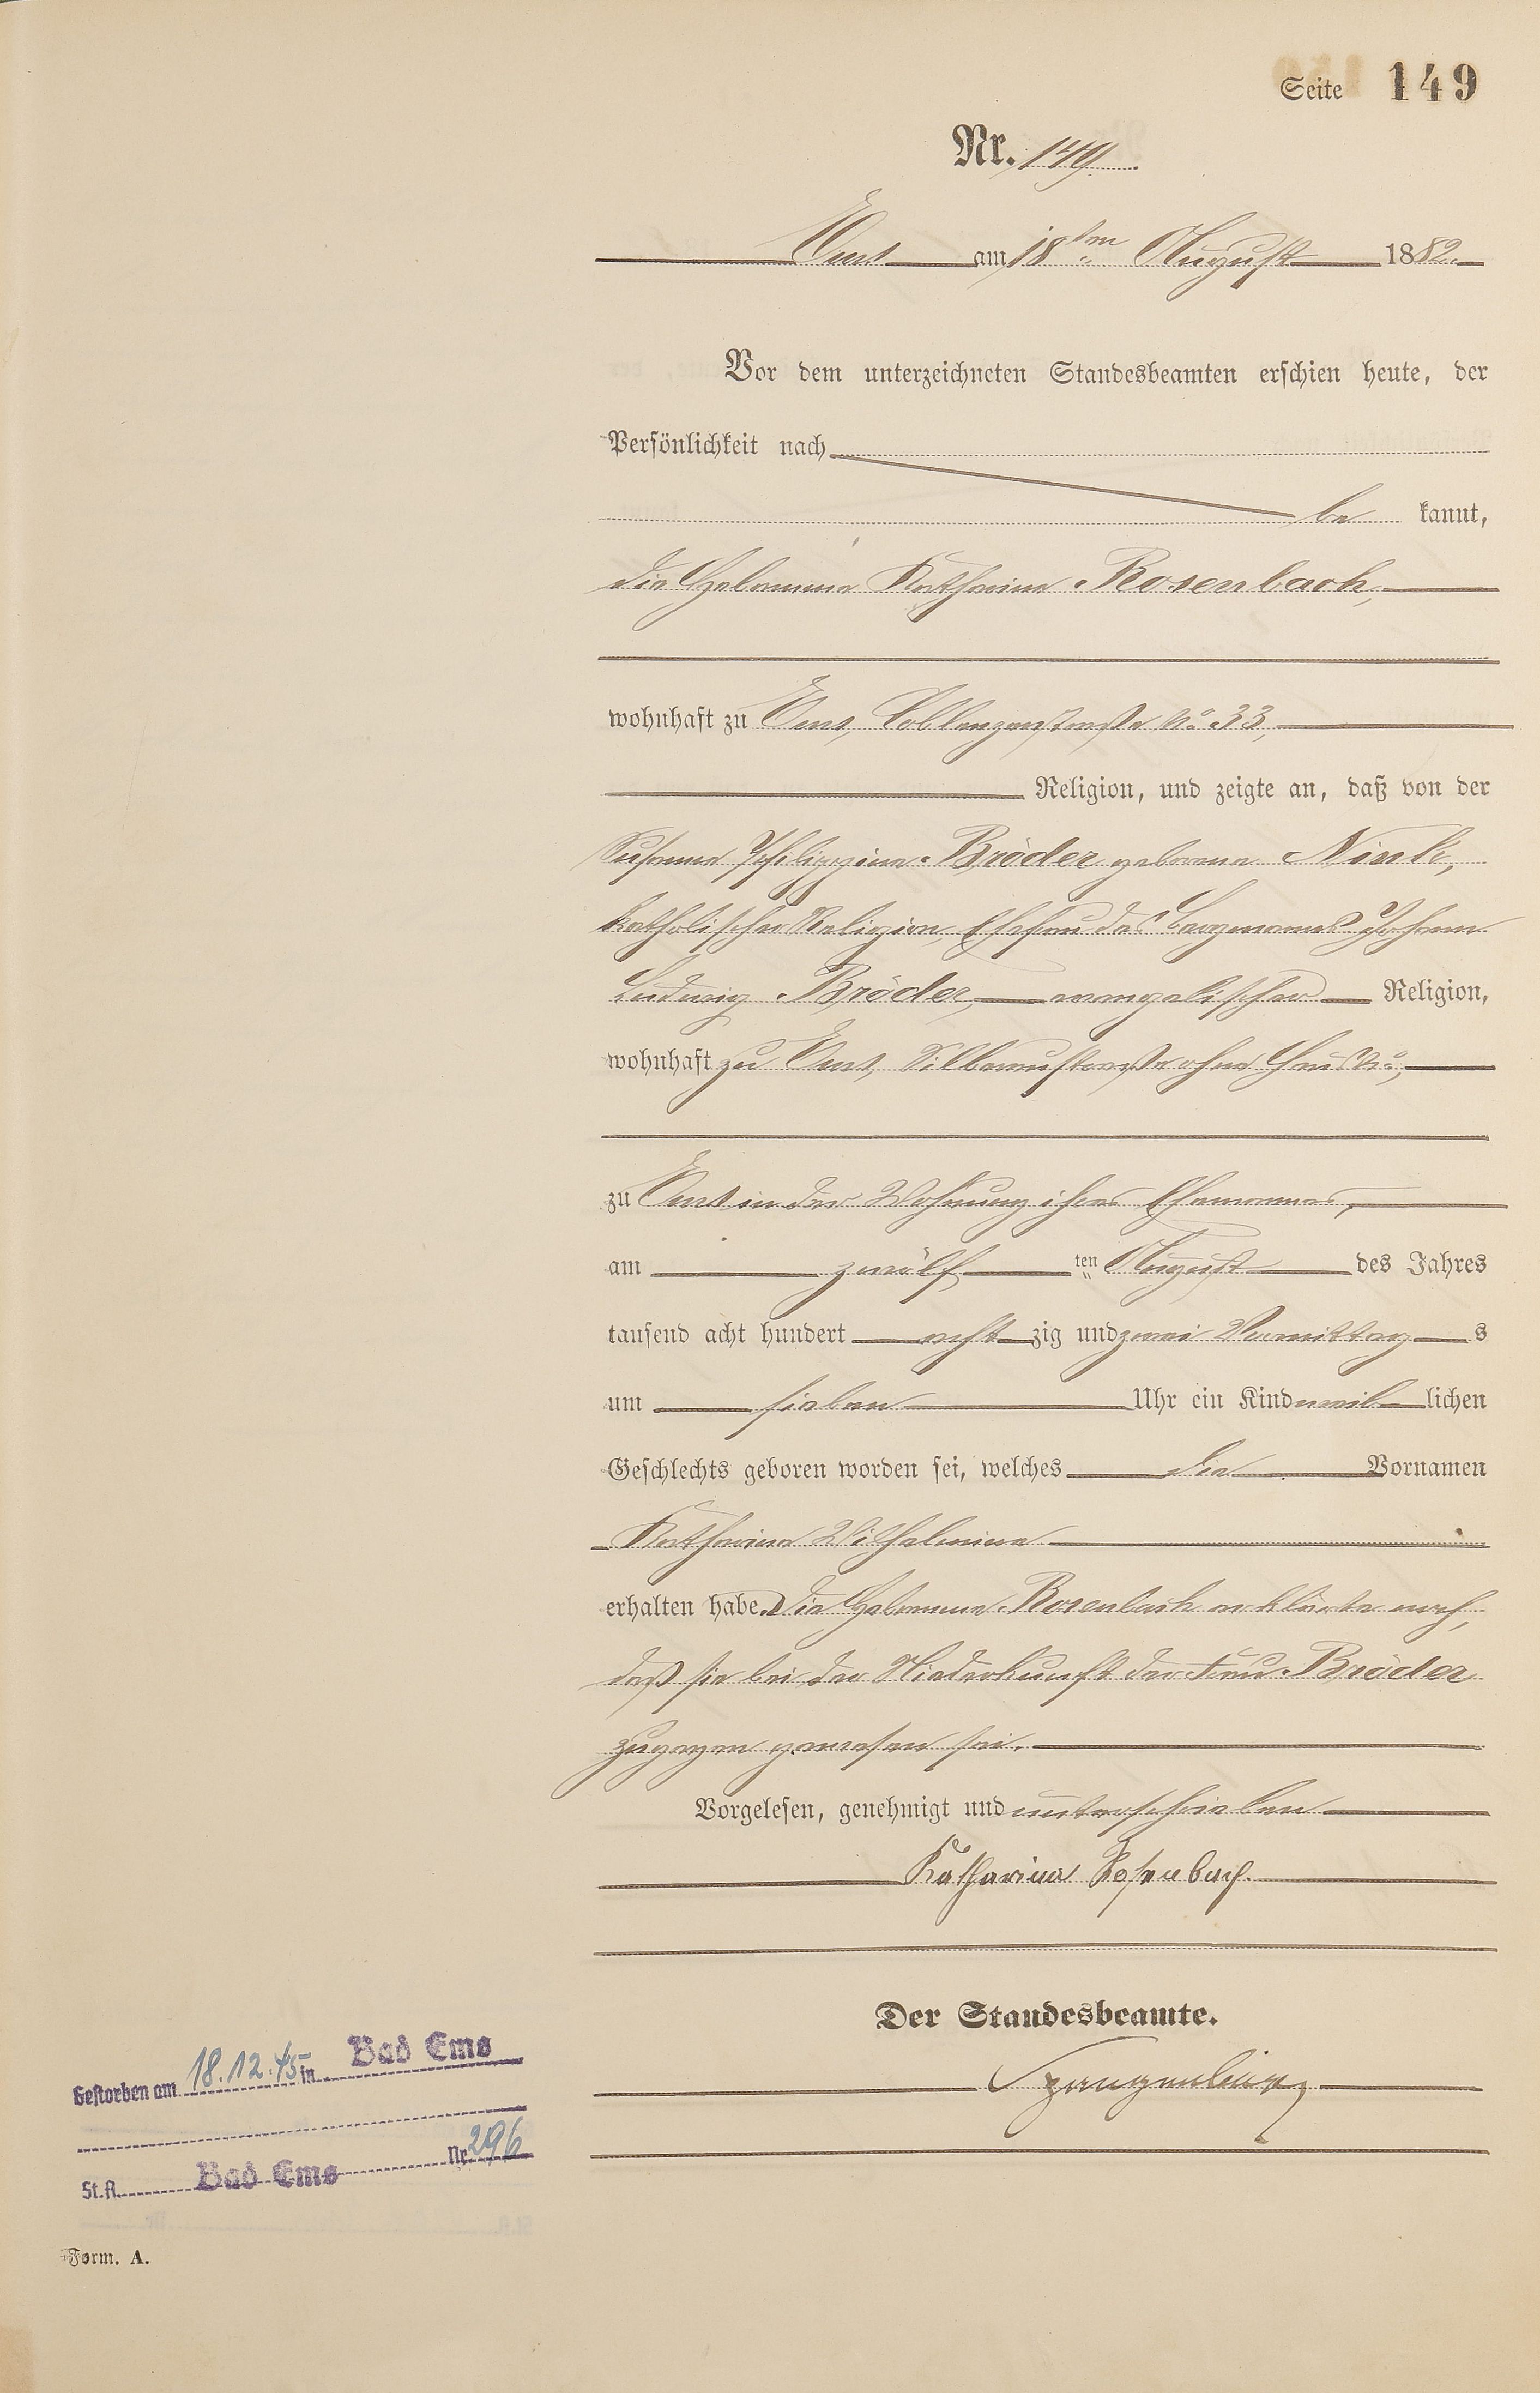 Seite 149
Nr. 149.
Ems am 18ten August 1882.
Vor dem unterzeichneten Standesbeamten erschien heute, der
Persönlichkeit nach
be kannt,
die Hebamme Katharina Rosenbach,
wohnhaft zu Ems, Coblenzerstraße No. 33,
Religion, und zeigte an, daß von der
Susanna Philippine Bröder geborene Nink,
katholischer Religion, Ehefrau des Bergmannes Johann
Ludwig Bröder, evangelischer Religion,
wohnhaft zu Ems, Silberaustraße ohne Haus No.,
zu Ems in der Wohnung ihres Ehemannes,
am zwölf ten August des Jahres
tausend acht hundert acht zig und zwei Vormittag s
um sieben Uhr ein Kind weib lichen
Geschlechts geboren worden sei, welches die Vornamen
Katharina Wilhelmine
erhalten habe. Die Hebamme Rosenbach erklärte noch,
daß sie bei der Niederkunft der Frau Bröder
zugegen gewesen sei.
Vorgelesen, genehmigt und unterschrieben
Katharina Rosenbach.
Der Standesbeamte.
Gestorben am 18.12.45 in Bad Ems
St.A. Bad Ems Nr. 296
Form. A.